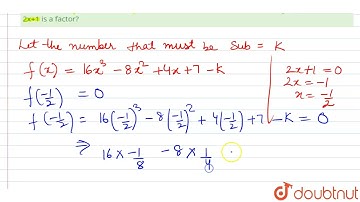 2x+1 is a factor?
Let the number that must be Sub = K
f(x) = 16x³ - 8x² + 4x + 7 - K
f(-1/2) = 0
f(-1/2) = 16(-1/2)³ - 8(-1/2)² + 4(-1/2) + 7 - K = 0
⇒ 16 × -1/8 - 8 × 1/4
2x+1 = 0
2x = -1
x = -1/2
doubtnut